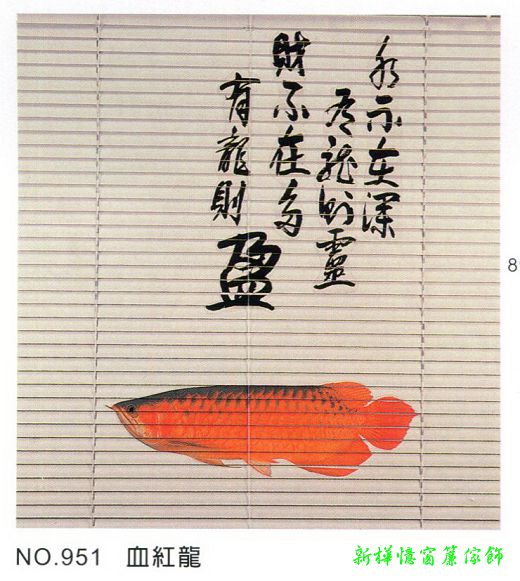 水不在深
有龍則靈
財不在多
有龍則盈
8
NO.951 血紅龍
新樺憶窗簾傢飾